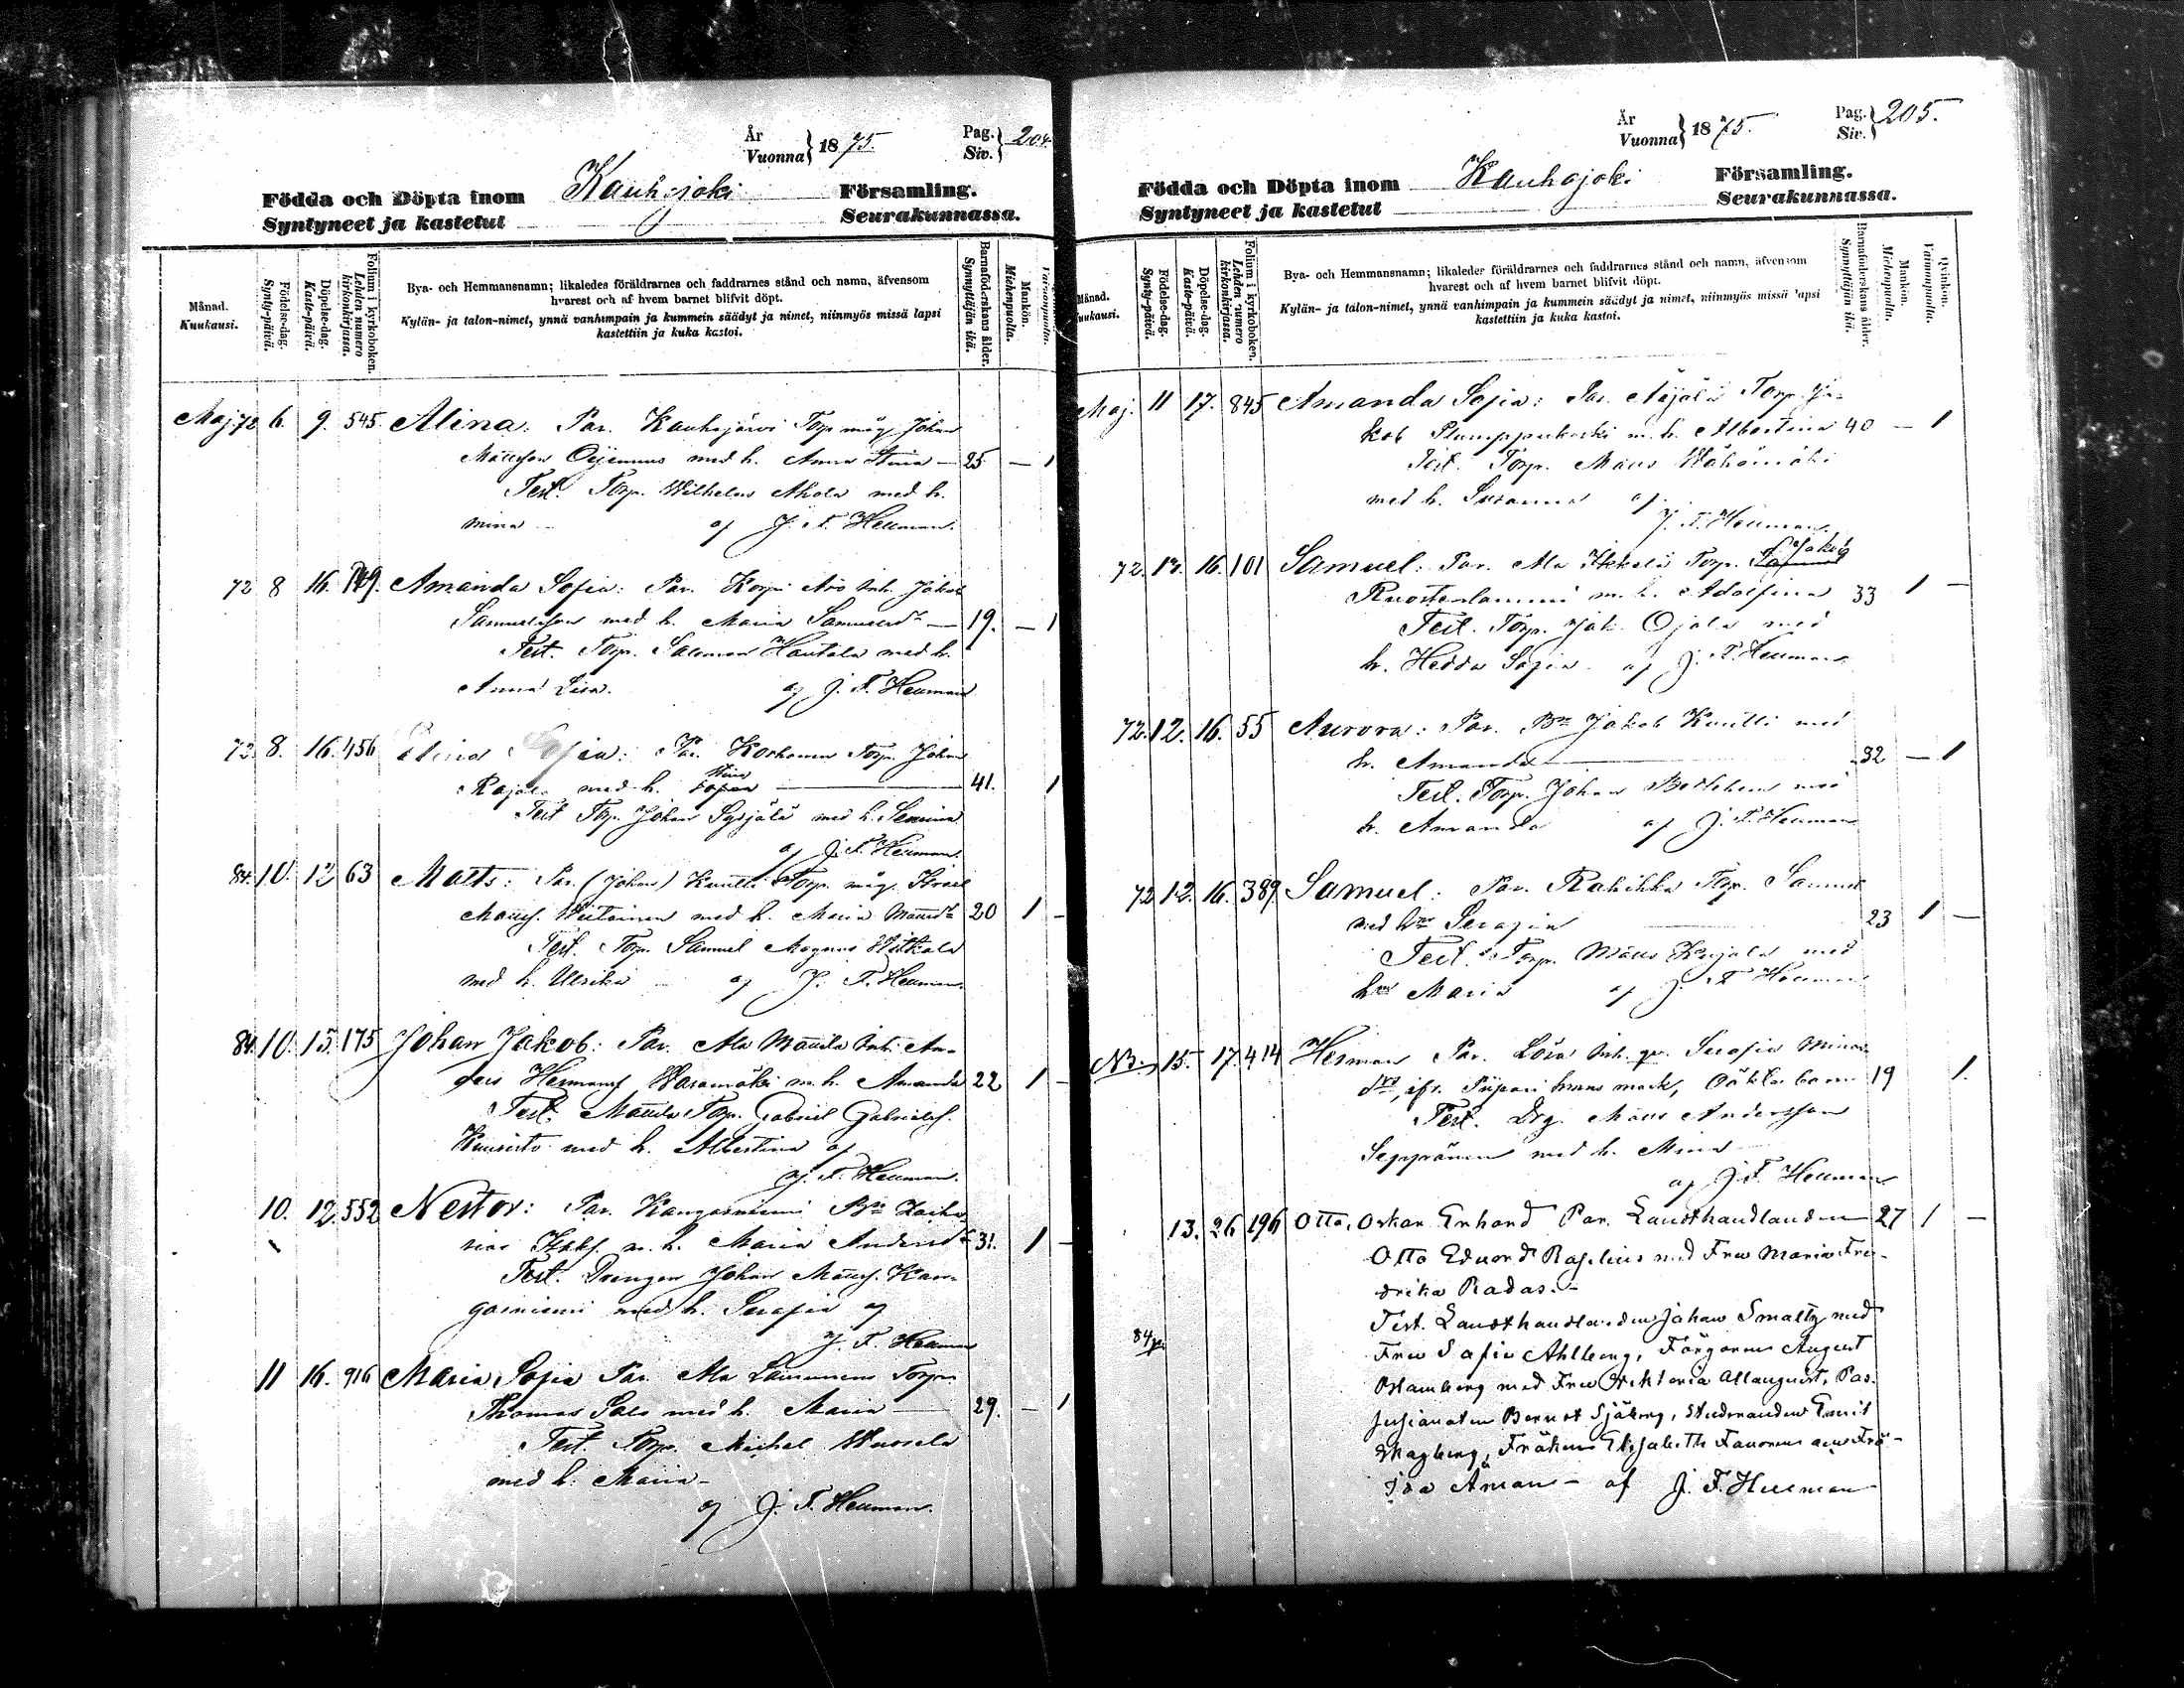 År
Vuonna } 1875.
Pag.
Siv. } 204
Födda och Döpta inom Kauhajoki Församling.
Syntyneet ja kastetut Seurakunnassa.
Månad.
Kuukausi.
Födelse-dag.
Synty-päivä.
Döpelse-dag.
Kaste-päivä.
Folium i kyrkoboken.
Lehden numero kirkonkirjassa.
Bya- och Hemmansnamn; likaledes föräldrarnes och faddrarnes stånd och namn, äfvensom
hvarest och af hvem barnet blifvit döpt.
Kylän- ja talon-nimet, ynnä vanhimpain ja kummein säädyt ja nimet, niinmyös missä lapsi
kastettiin ja kuka kastoi.
Barnaföderskans ålder.
Synnyttäjän ikä.
Mankön.
Miehenpuolta.
Maj 72 6. 9. 545 Alina: Par. Kauhajärvi Torp. måg Johan
Mattsson med h. Anna Stina — 25 — 1
Test. Torp. Wilhelm Ahola med h.
Mina af J. F. Heuman.
72 8 16. Amanda Sofia: Par. Korpi Aro Inh. Jakob
Samuelsson med h. Maria Samuelsdr — 19. — 1
Test. Torp. Salomon Hautala med h.
Anna Lisa. af J. F. Heuman
72. 8. 16. 456 Elina Sofia: Par. Korhonen Torp. Johan
Rajala med h. Stina 41. 1
Test Torp. Johan Syrjälä med h. Serafina
af J. F. Heuman.
84. 10. 12 63 Matts: Par. (Johns) Knuutti Torp. måg. Israel
Mattss. med h. Maria Mattsdr 20 1 —
Test. Torp. Samuel Magnus
med h. Ulrika af J. F. Heuman.
84. 10. 15. 175 Johan Jakob: Par. Ala Mattila Inh. An-
ders Hermanss. Wasamäki m. h. Amanda 22 1 —
Test. Mattila Torp. Gabriel Gabrielss.
Kuusisto med h. Albertina af
J. F. Heuman.
10. 12. 552 Nestor: Par. Kangasniemi Bn Zacha-
rias m. h. Maria Andersdr 31. 1 —
Test. Drengen Johan Mattss. Kan-
gasniemi med h. Serafia af
J. F. Heuman
11 16. 916 Maria Sofia Par. Ala Lamminen Torp.
Thomas Salo med h. Maria — 29. — 1
Test. Torp. Michel
med h. Maria —
af J. F. Heuman.
År
Vuonna } 1875.
Pag.
Siv. } 205.
Födda och Döpta inom Kauhajoki Församling.
Syntyneet ja kastetut Seurakunnassa.
Månad.
Kuukausi.
Födelse-dag.
Synty-päivä.
Döpelse-dag.
Kaste-päivä.
Folium i kyrkoboken.
Lehden numero kirkonkirjassa.
Bya- och Hemmansnamn; likaledes föräldrarnes och faddrarnes stånd och namn, äfvensom
hvarest och af hvem barnet blifvit döpt.
Kylän- ja talon-nimet, ynnä vanhimpain ja kummein säädyt ja nimet, niinmyös missä lapsi
kastettiin ja kuka kastoi.
Barnaföderskans ålder.
Synnyttäjän ikä.
Mankön.
Miehenpuolta.
Qvinkön.
Vaimonpuolta.
Maj. 11 17. 845 Amanda Sofia: Par. Äijälä Torp. Ja-
kob m. h. Albertina 40 — 1
Test. Torp. Matts Wähämäki
med h. Susanna af
J. F. Heuman.
Jakob
72. 12. 16. 101 Samuel: Par. Ala Ikkelä Torp. Samuel
m. h. Adolfina 33 1 —
Test. Torp. Jak. Ojala med
h. Hedda Sofia. af J. F. Heuman
72. 12. 16. 55 Aurora: Par. Bn Jakob Knuutti med
h. Amanda 32 — 1
Test. Torp. Johan Betlehem med
h. Amanda af J. F. Heuman
72 12. 16. 389 Samuel: Par. Rahikka Torp. Samuel
med hu Serafia 23 1 —
Test. Torp. Matts med
hu Maria af J. F. Heuman
NB. 15. 17. 414 Herman Par. Inh. Serafia
oäkta barn 19 1.
Test. Drg. Matts Andersson
Seppänen med h. Mina
af J. F. Heuman
13. 26 196 Otto, Oskar Enhard Par. Landthandlanden 27 1 —
Otto Edvard med Fru Maria Fre-
drika Radas. —
Test. Landthandlanden Johan Smaltz med
84
Fru Sofia Ahlberg, Färgaren August
Stamberg med Fru Viktoria Allanqvist, Pos-
sesionaten Bernst Sjöberg, Studeranden Emil
Hagberg, Fröken Elisabeth och Frö-
Ida Aman — af J. F. Heuman